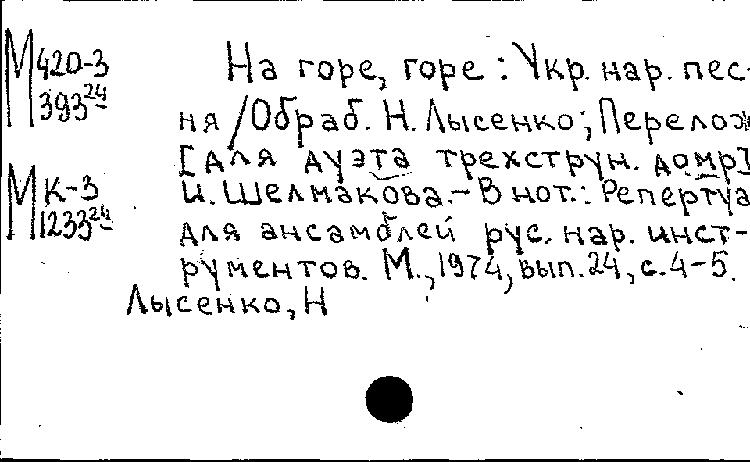 М 420-3
393 24
М К-3
1233 24
На горе, горе : Укр. нар. пес-
ня / Обраб. Н. Лысенко; Перелож
[для дуэта трехструн. домр]
И. Шелмакова. – В нот.: Репертуа
для ансамблей рус. нар. инст-
рументов. М., 1974, вып. 24, с. 4-5.
Лысенко, Н